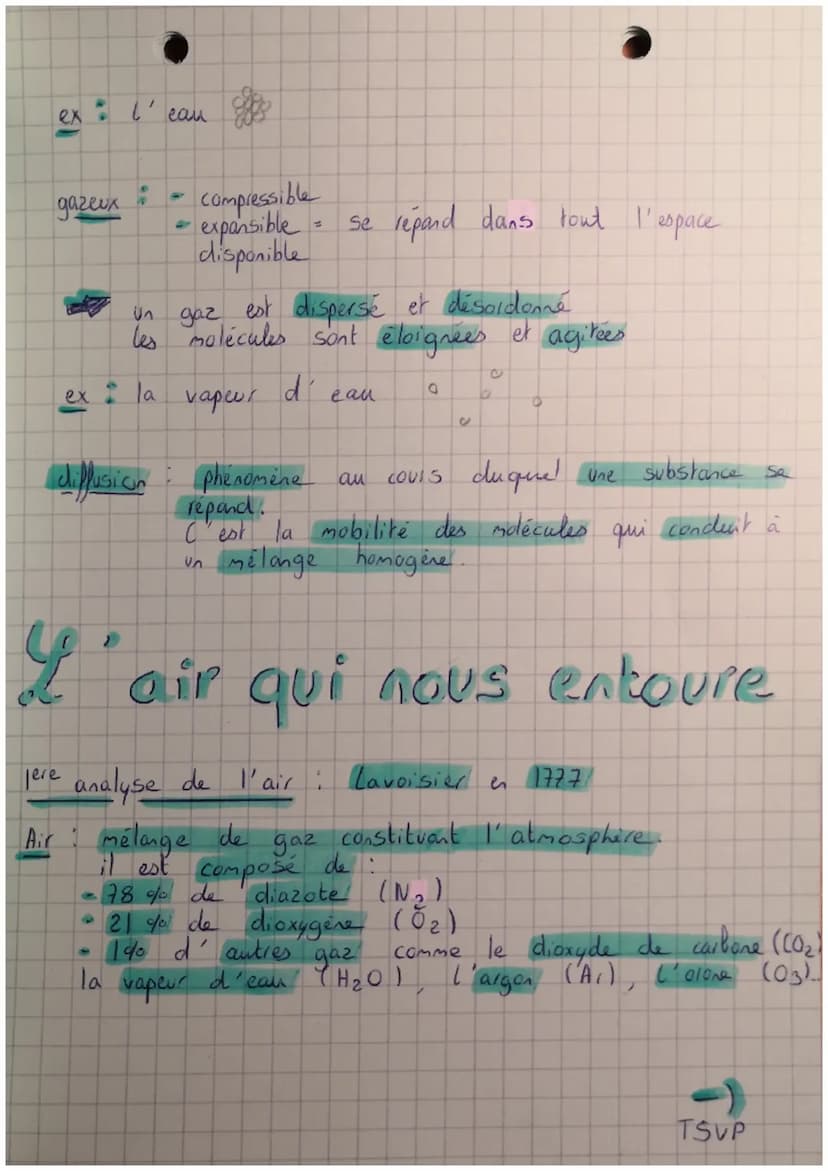 ex : l'eau
gazeux : - compressible
- expansible = se répand dans tout l'espace
disponible
un gaz est dispersé et désordonné
les molécules sont éloignées et agitées
ex : la vapeur d'eau
diffusion : phénomène au cours duquel une substance se
répand.
C'est la mobilité des molécules qui conduit à
un mélange homogène.
L'air qui nous entoure
1ère analyse de l'air : Lavoisier en 1777
Air : mélange de gaz constituant l'atmosphère.
il est composé de :
- 78 % de diazote (N2)
- 21 % de dioxygène (O2)
- 1% d'autres gaz comme le dioxyde de carbone (CO2)
la vapeur d'eau (H2O), l'argon (Ar), l'ozone (O3)...
TSVP